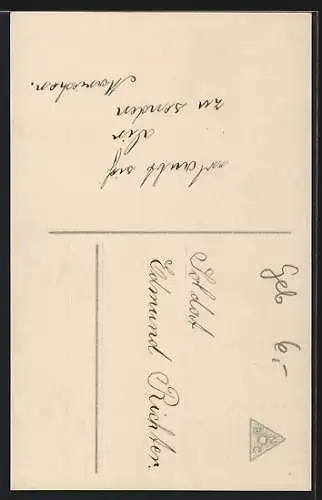 erlaubt sich
dir
zu senden
Mariechen.
Soldat
Edmund Richter.
Geb 6,-